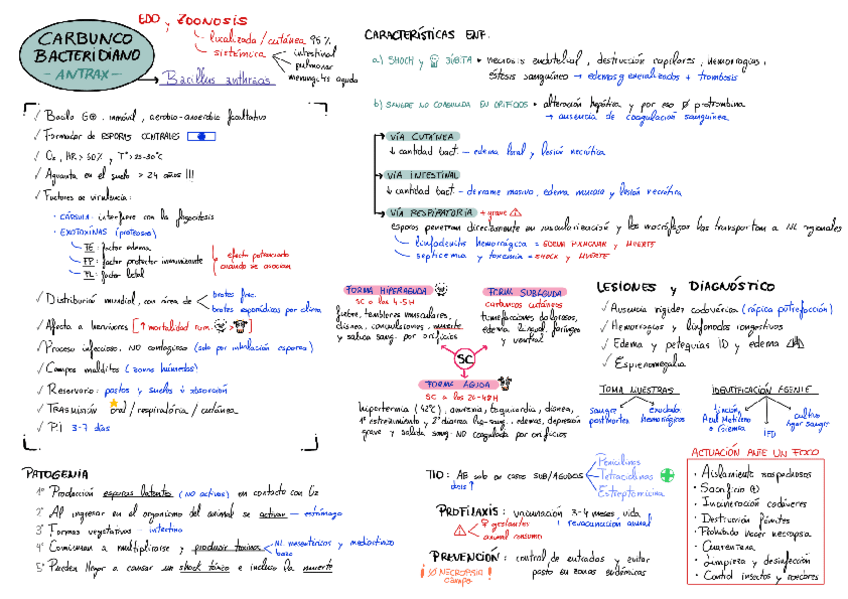 CARBUNCO
BACTERIDIANO
- ANTRAX -
EDO y ZOONOSIS
localizada / cutánea 95%
sistémica
intestinal
pulmonar
meningitis aguda
Bacillus anthracis
✓ Bacilo G⊕, inmóvil, aerobio-anaerobio facultativo
✓ Formador de ESPORAS CENTRALES
✓ O₂, HR > 50%, Tª > 25-30°C
✓ Aguanta en el suelo > 24 años !!!
✓ Factores de virulencia:
· CÁPSULA: interfiere con la fagocitosis
· EXOTOXINAS (proteasas)
FE: factor edema
FP: factor protector inmunizante
FL: factor letal
efecto potenciante cuando se asocian
✓ Distribución mundial, con área de
brotes frec.
brotes esporádicos por clima
✓ Afecta a herbívoros [↑ mortalidad rum. > ]
✓ Proceso infeccioso, NO contagioso (solo por inhalación esporas)
✓ Campos malditos (zonas húmedas)
✓ Reservorio: pastos y suelos ↓ absorción
✓ Trasmisión oral / respiratoria / cutánea
✓ P.I 3-7 días
PATOGENIA
1º Producción esporas latentes (NO activas) en contacto con O₂
2º Al ingresar en el organismo del animal se activan - estómago
3º Formas vegetativas - intestino
4º Comienzan a multiplicarse y producir toxinas
NL mesentéricos y mediastino
bazo
5º Pueden llegar a causar un shock tóxico e incluso la muerte
CARACTERÍSTICAS ENF.
a) SHOCK y SÚBITA • necrosis endotelial, destrucción capilares, hemorragias,
éstasis sanguíneo → edemas generalizados + trombosis
b) SANGRE NO COAGULADA EN ORIFICIOS • alteración hepática y por eso Ø protrombina
→ ausencia de coagulación sanguínea
VÍA CUTÁNEA
↓ cantidad bact. - edema local y lesión necrótica
VÍA INTESTINAL
↓ cantidad bact. - derrame masivo, edema mucosa y lesión necrótica
VÍA RESPIRATORIA + grave
esporas penetran directamente en vascularización y los macrófagos las transportan a NL regionales
linfadenitis hemorrágica = EDEMA PULMONAR y MUERTE
septicemia y toxemia = SHOCK y MUERTE
FORMA HIPERAGUDA
SC a las 4-5H
fiebre, temblores musculares,
disnea, convulsiones, muerte
y salida sang. por orificios
FORMA SUBAGUDA
carbuncos cutáneos
tumefacciones dolorosas,
edema y ventral
SC
FORMA AGUDA
SC a las 24-48H
hipertermia (42°C), anorexia, taquicardia, disnea,
1º estreñimiento y 2º diarrea sang., edemas, depresión
grave y salida sang NO coagulada por orificios
LESIONES y DIAGNÓSTICO
✓ Ausencia rigidez cadavérica (rápida putrefacción)
✓ Hemorragias y linfonodos congestivos
✓ Edema y petequias ID y edema
✓ Esplenomegalia
TOMA MUESTRAS
sangre postmortem
exudado hemorrágicos
IDENTIFICACIÓN AGENTE
tinción Azul Metileno o Giemsa
IFD
cultivo agar sangre
TTO: AB solo en casos SUB/AGUDOS
dosis ↑
Penicilinas
Tetraciclinas
Estreptomicina
PROFILAXIS: vacunación 3-4 meses vida
revacunación anual
♀ gestantes
animal consumo
PREVENCIÓN: control de entradas y evitar
pasto en zonas endémicas
¡Ø NECROPSIA campo!
ACTUACIÓN ANTE UN FOCO
· Aislamiento sospechosos
· Sacrificio ⊕
· Incineración cadáveres
· Destrucción fómites
· Prohibido hacer necropsia
· Cuarentena
· Limpieza y desinfección
· Control insectos y roedores